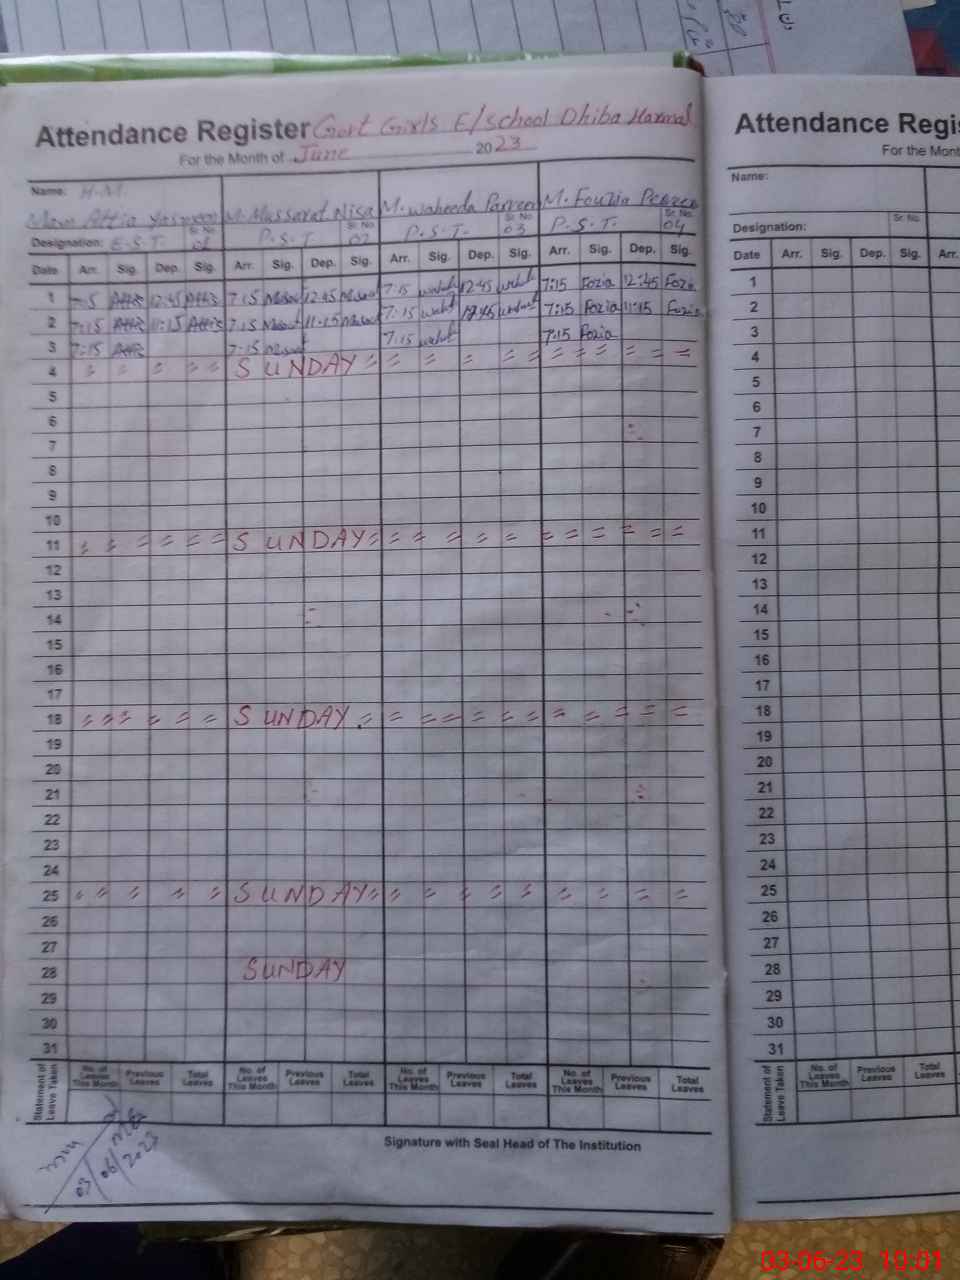 Attendance Register Govt Girls E/School Dhiba Harmal
For the Month of June 2023
Name: H.M
Mam Attia Yasmeen M. Mussarat Nisa M. Waheeda Parveen M. Fouzia Parveen
Designation: E.S.T. Sr. No. 01 P.S.T. Sr. No. 02 P.S.T. Sr. No. 03 P.S.T. Sr. No. 04
Date Arr. Sig. Dep. Sig. Arr. Sig. Dep. Sig. Arr. Sig. Dep. Sig. Arr. Sig. Dep. Sig.
1 7:15 Attia 12:45 Attia 7:15 12:45 7:15 12:45 7:15 Fozia 12:45 Fozia
2 7:15 Attia 11:15 Attia 7:15 11:15 7:15 7:15 Fozia 11:15 Fozia
3 7:15 Attia 7:15 7:15 7:15 Fozia
4 SUNDAY
5
6
7
8
9
10
11 SUNDAY
12
13
14
15
16
17
18 SUNDAY
19
20
21
22
23
24
25 SUNDAY
26
27
28 SUNDAY
29
30
31
Statement of Leave Taken
No. of Leaves This Month Previous Leaves Total Leaves No. of Leaves This Month Previous Leaves Total Leaves No. of Leaves This Month Previous Leaves Total Leaves No. of Leaves This Month Previous Leaves Total Leaves
Signature with Seal Head of The Institution
03/06/2023
Attendance Regis
For the Mont
Name:
Designation: Sr. No.
Date Arr. Sig. Dep. Sig. Arr.
1
2
3
4
5
6
7
8
9
10
11
12
13
14
15
16
17
18
19
20
21
22
23
24
25
26
27
28
29
30
31
Statement of Leave Taken
No. of Leaves This Month Previous Leaves Total Leaves
03-06-23 10:01